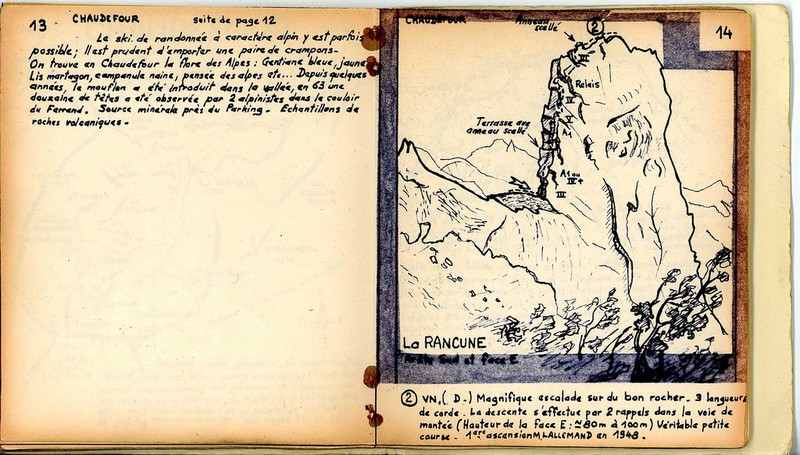 13 CHAUDEFOUR suite de page 12
Le ski de randonnée à caractère alpin y est parfois
possible; Il est prudent d'emporter une paire de crampons-
On trouve en Chaudefour la flore des Alpes : Gentiane bleue, jaune
Lis martagon, campanule naine, pensée des alpes etc... Depuis quelques
années, le mouflon a été introduit dans la vallée, en 63 une
douzaine de têtes a été observée par 2 alpinistes dans le couloir
du Ferrand. Source minérale près du Parking - Echantillons de
roches volcaniques -
CHAUDEFOUR
14
Anneau
scellé
2
III
Relais
V
A1
Terrasse avec
anneau scellé
A1 ou
IV+
III
La RANCUNE
Arête Sud et face E
2 VN.( D-) Magnifique escalade sur du bon rocher - 3 longueurs
de corde. La descente s'effectue par 2 rappels dans la voie de
montée (Hauteur de la face E : ≃ 80m à 100m) Véritable petite
course - 1ère ascension M. LALLEMAND en 1948.